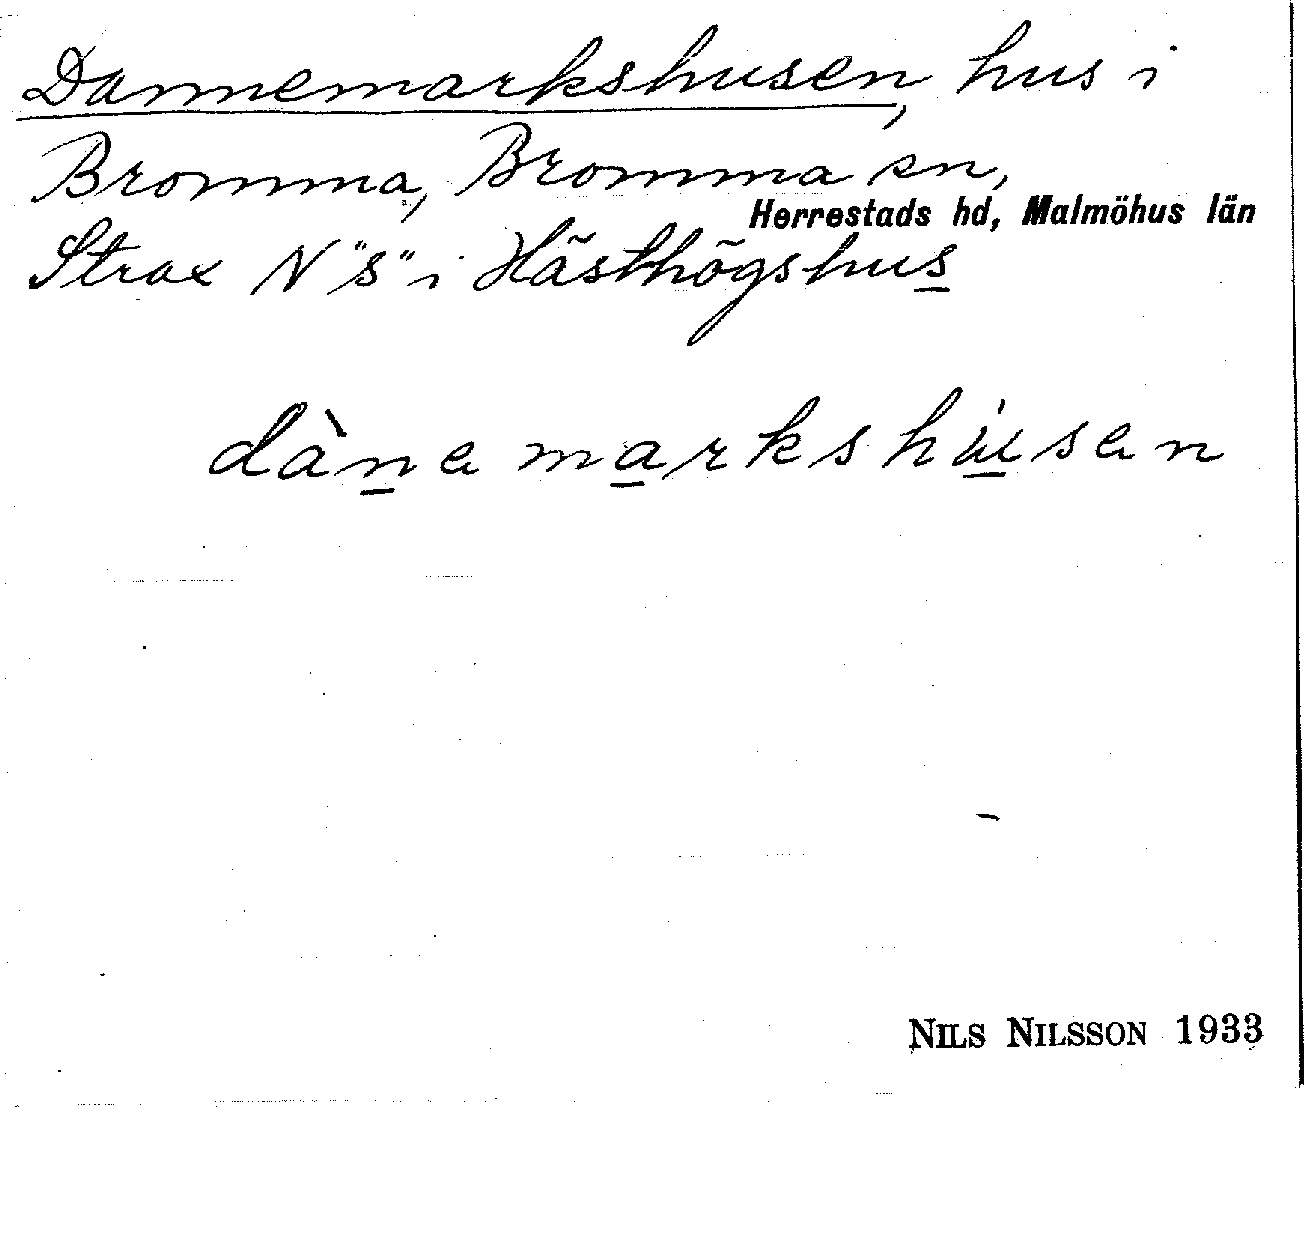 Dannemarkshusen, hus i
Bromma, Bromma sn,
Herrestads hd, Malmöhus län
Strax N "s" i Hästhögshus
dànemarkshu̇sen
NILS NILSSON 1933